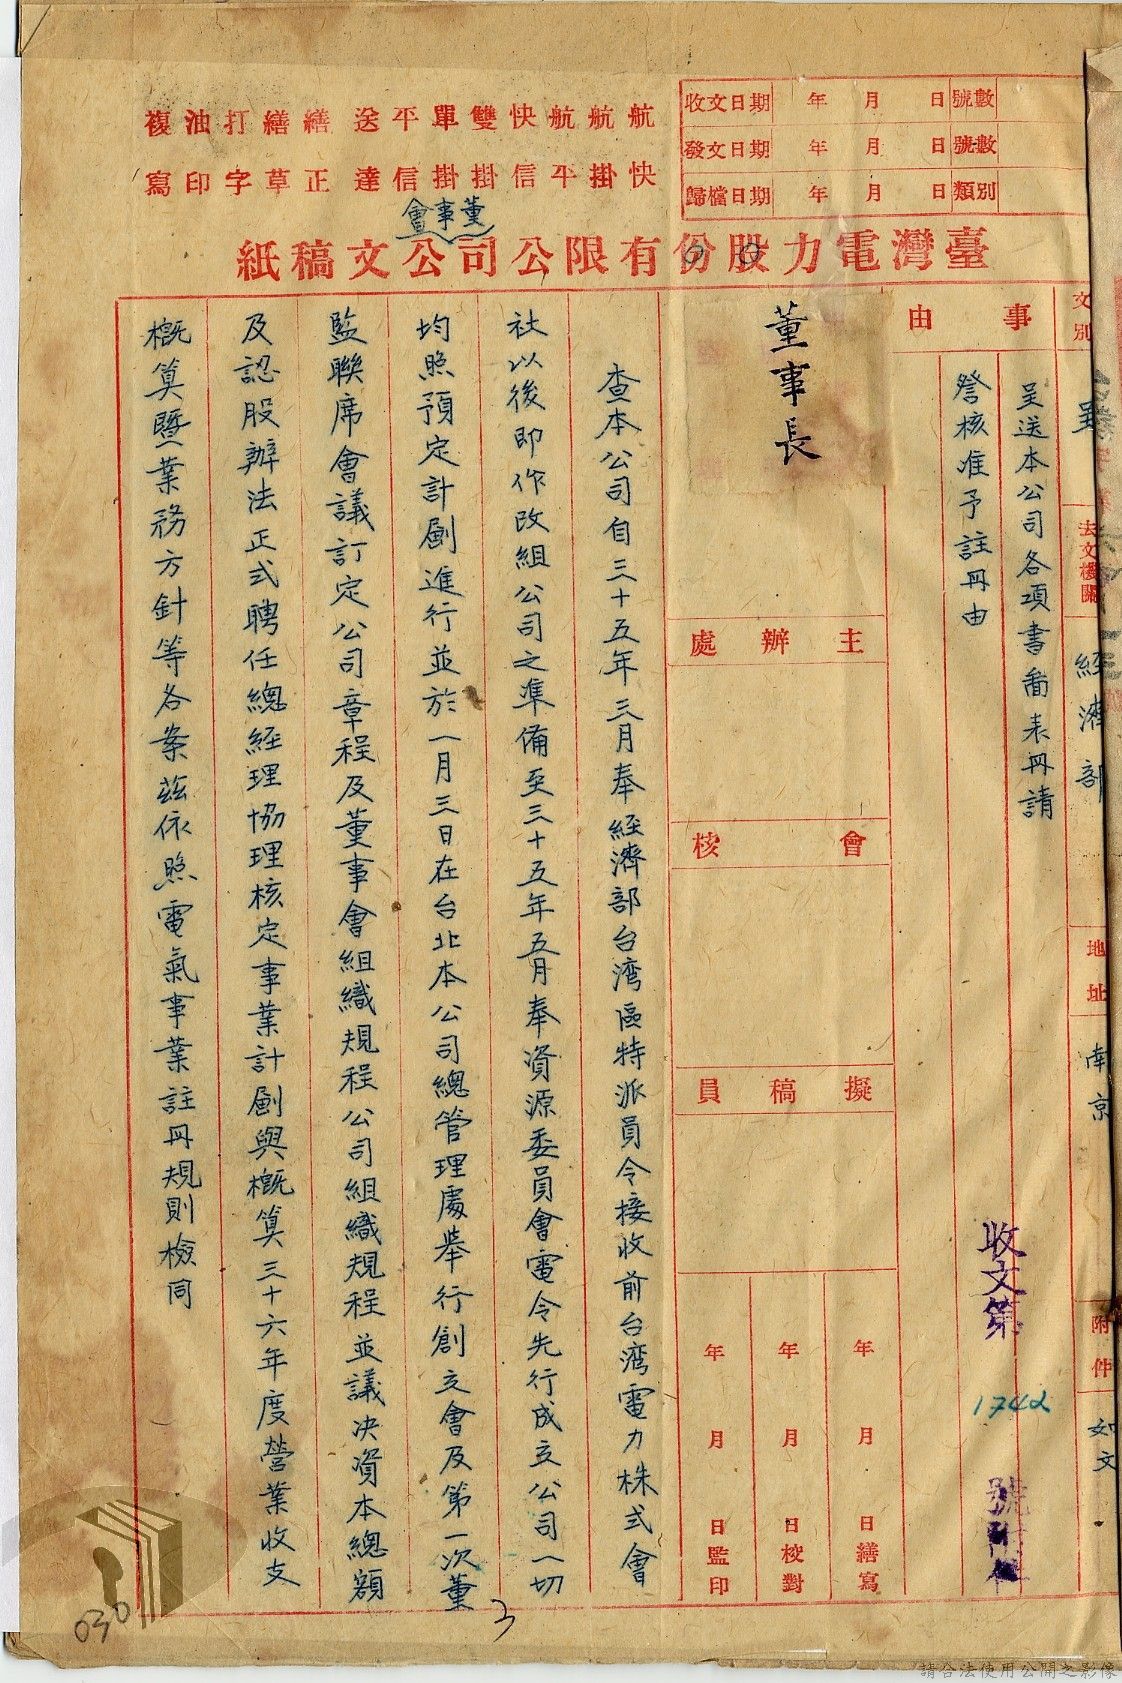 收文日期 年 月 日 號數
發文日期 年 月 日 號數
歸檔日期 年 月 日 類別
航快 航掛 航平 快信 雙掛 單掛 平信 送達 繕正 繕草 打字 油印 複寫
董事會
臺灣電力股份有限公司公文稿紙
文別
呈
去文機關
經濟部
地址
南京
附件
如文
事由
呈送本公司各項書畨表冊請
詧核准予註冊由
收文第
1742
號附件
董事長
主辦處
會核
擬稿員
年 月 日繕寫
年 月 日校對
年 月 日監印
查本公司自三十五年三月奉經濟部台湾區特派員令接收前台湾電力株式會
社以後即作改組公司之準備至三十五年五月奉資源委員會電令先行成立公司一切
均照預定計劃進行並於一月三日在台北本公司總管理處舉行創立會及第一次董
監聯席會議訂定公司章程及董事會組織規程公司組織規程並議決資本總額
及認股辦法正式聘任總経理協理核定事業計劃與概算三十六年度營業收支
概算暨業務方針等各案茲依照電氣事業註冊規則檢同
3
030
請合法使用公開之影像